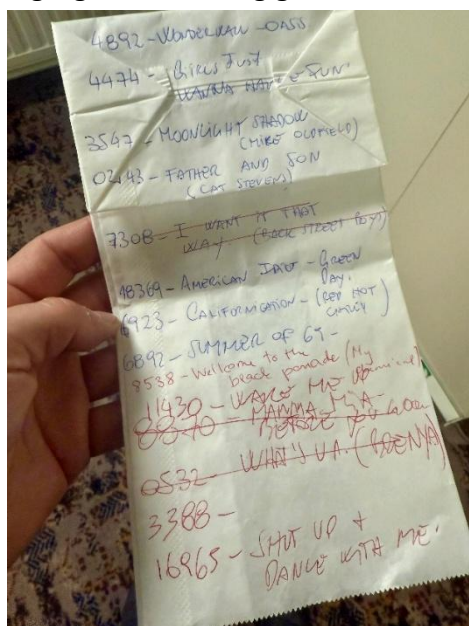 4892 - WONDERWALL - OASIS
4474 - GIRLS JUST
WANNA HAVE FUN.
3547 - MOONLIGHT SHADOW
(MIKE OLDFIELD)
02443 - FATHER AND SON
(CAT STEVENS)
7308 - I WANT IT THAT
WAY (BACK STREET BOYS)
18369 - AMERICAN IDIOT - GREEN
DAY.
6923 - CALIFORNICATION - (RED HOT
6892 - SUMMER OF 69 -
8538 - Wellcome to the
black parade (My
11430 - WAKE ME
8870 - MAMMA MIA -
BEFORE YOU GO
0532 - WHAT'S UP. (
3388 -
16965 - SHUT UP +
DANCE WITH ME.